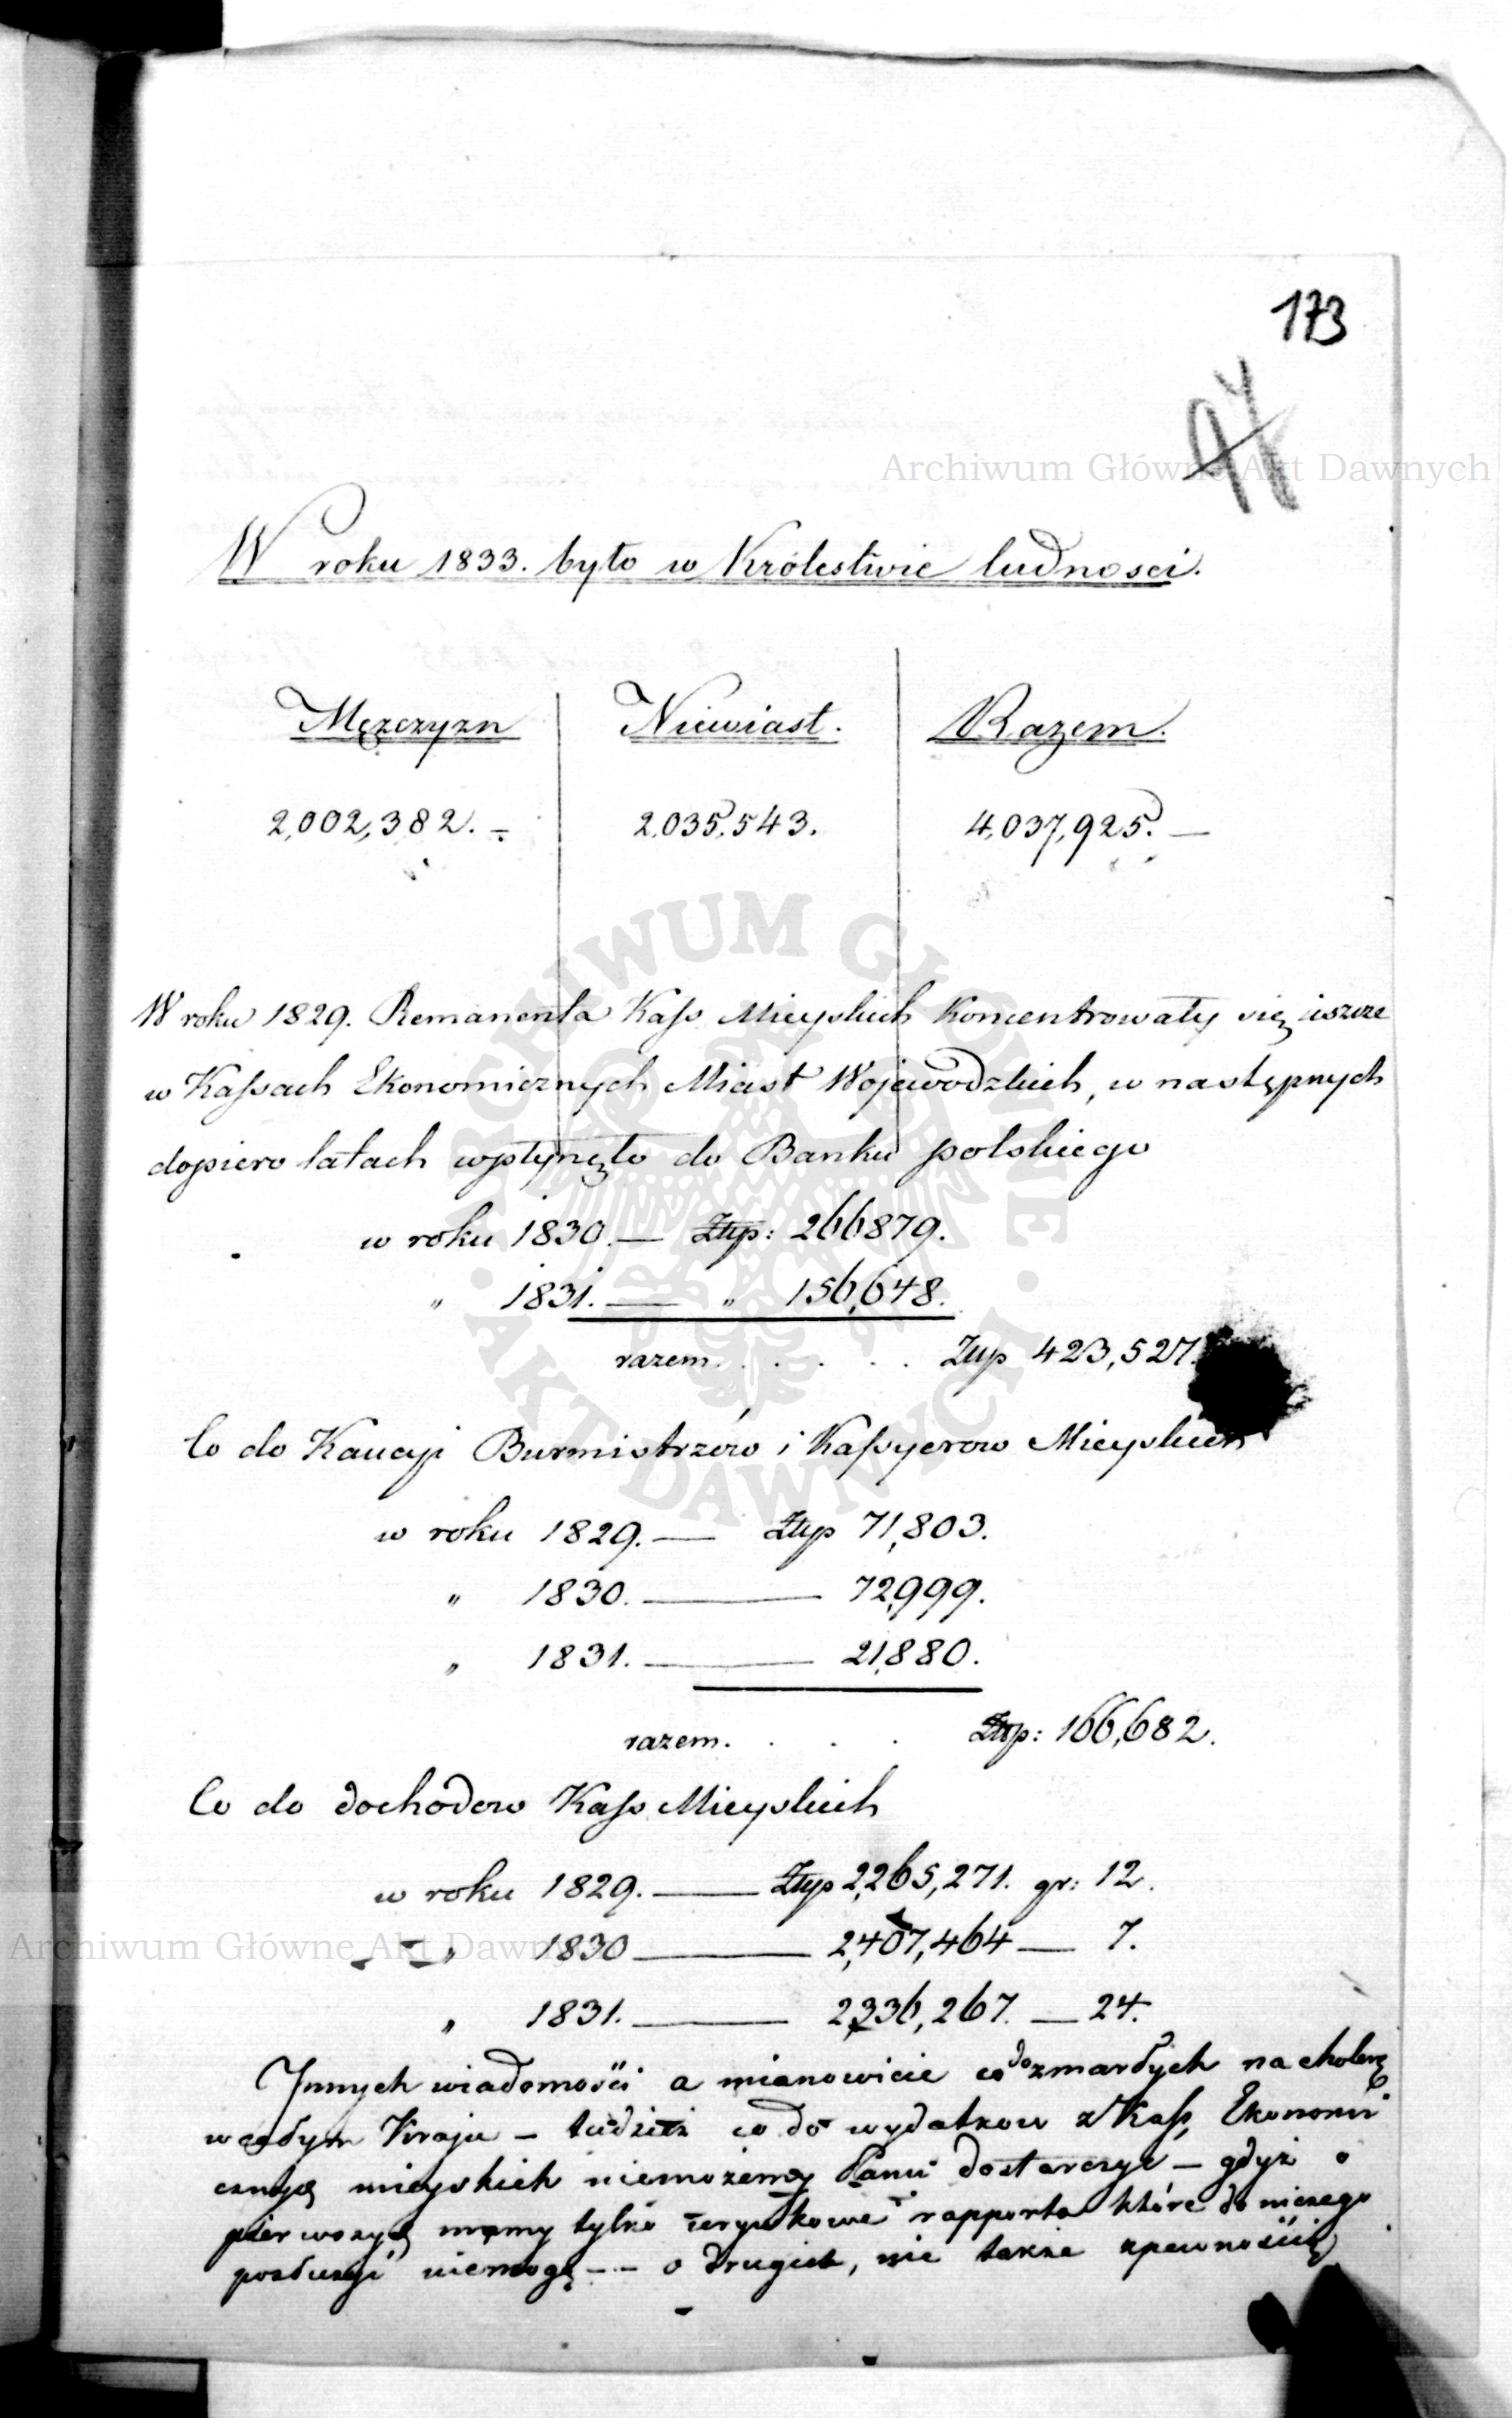 173
97
Archiwum Główne Akt Dawnych
W roku 1833. było w Królestwie ludności.
Mężczyzn Niewiast. Razem.
2,002,382. 2.035.543. 4,037,925.—
W roku 1829. Remanenta Kass Mieyskich Koncentrowały się ieszcze
w Kassach Ekonomicznych Miast Wojewodzkich, w następnych
dopiero latach wpłynęło do Banku polskiego
w roku 1830.— Złtp: 266879.
" 1831.— " 156,648.
razem. . . . . . Złp 423,527.
Co do Kaucyi Burmistrzów i Kassyerow Mieyskich
w roku 1829.— Złtp 71,803.
" 1830.— 72,999.
" 1831.— 21,880.
razem. . . . Złtp: 166,682.
Co do dochodow Kass Mieyskich
w roku 1829.— Złtp 2,265,271. gr: 12.
" 1830— 2,407,464— 7.
Archiwum Główne Akt Dawnych
" 1831.— 2,336,267.— 24.
Innych wiadomości a mianowicie co do zmarłych na cholerę
w całym Kraju — tudzież co do wydatkow z Kass Ekonomi
cznych mieyskich niemożemy Panu dostarczyć — gdyż o
pierwszych mamy tylko rapporta które do niczego
posłużyć niemogą -- o drugich, nie także z pewnością
ARCHIWUM GŁÓWNE · AKT DAWNYCH ·